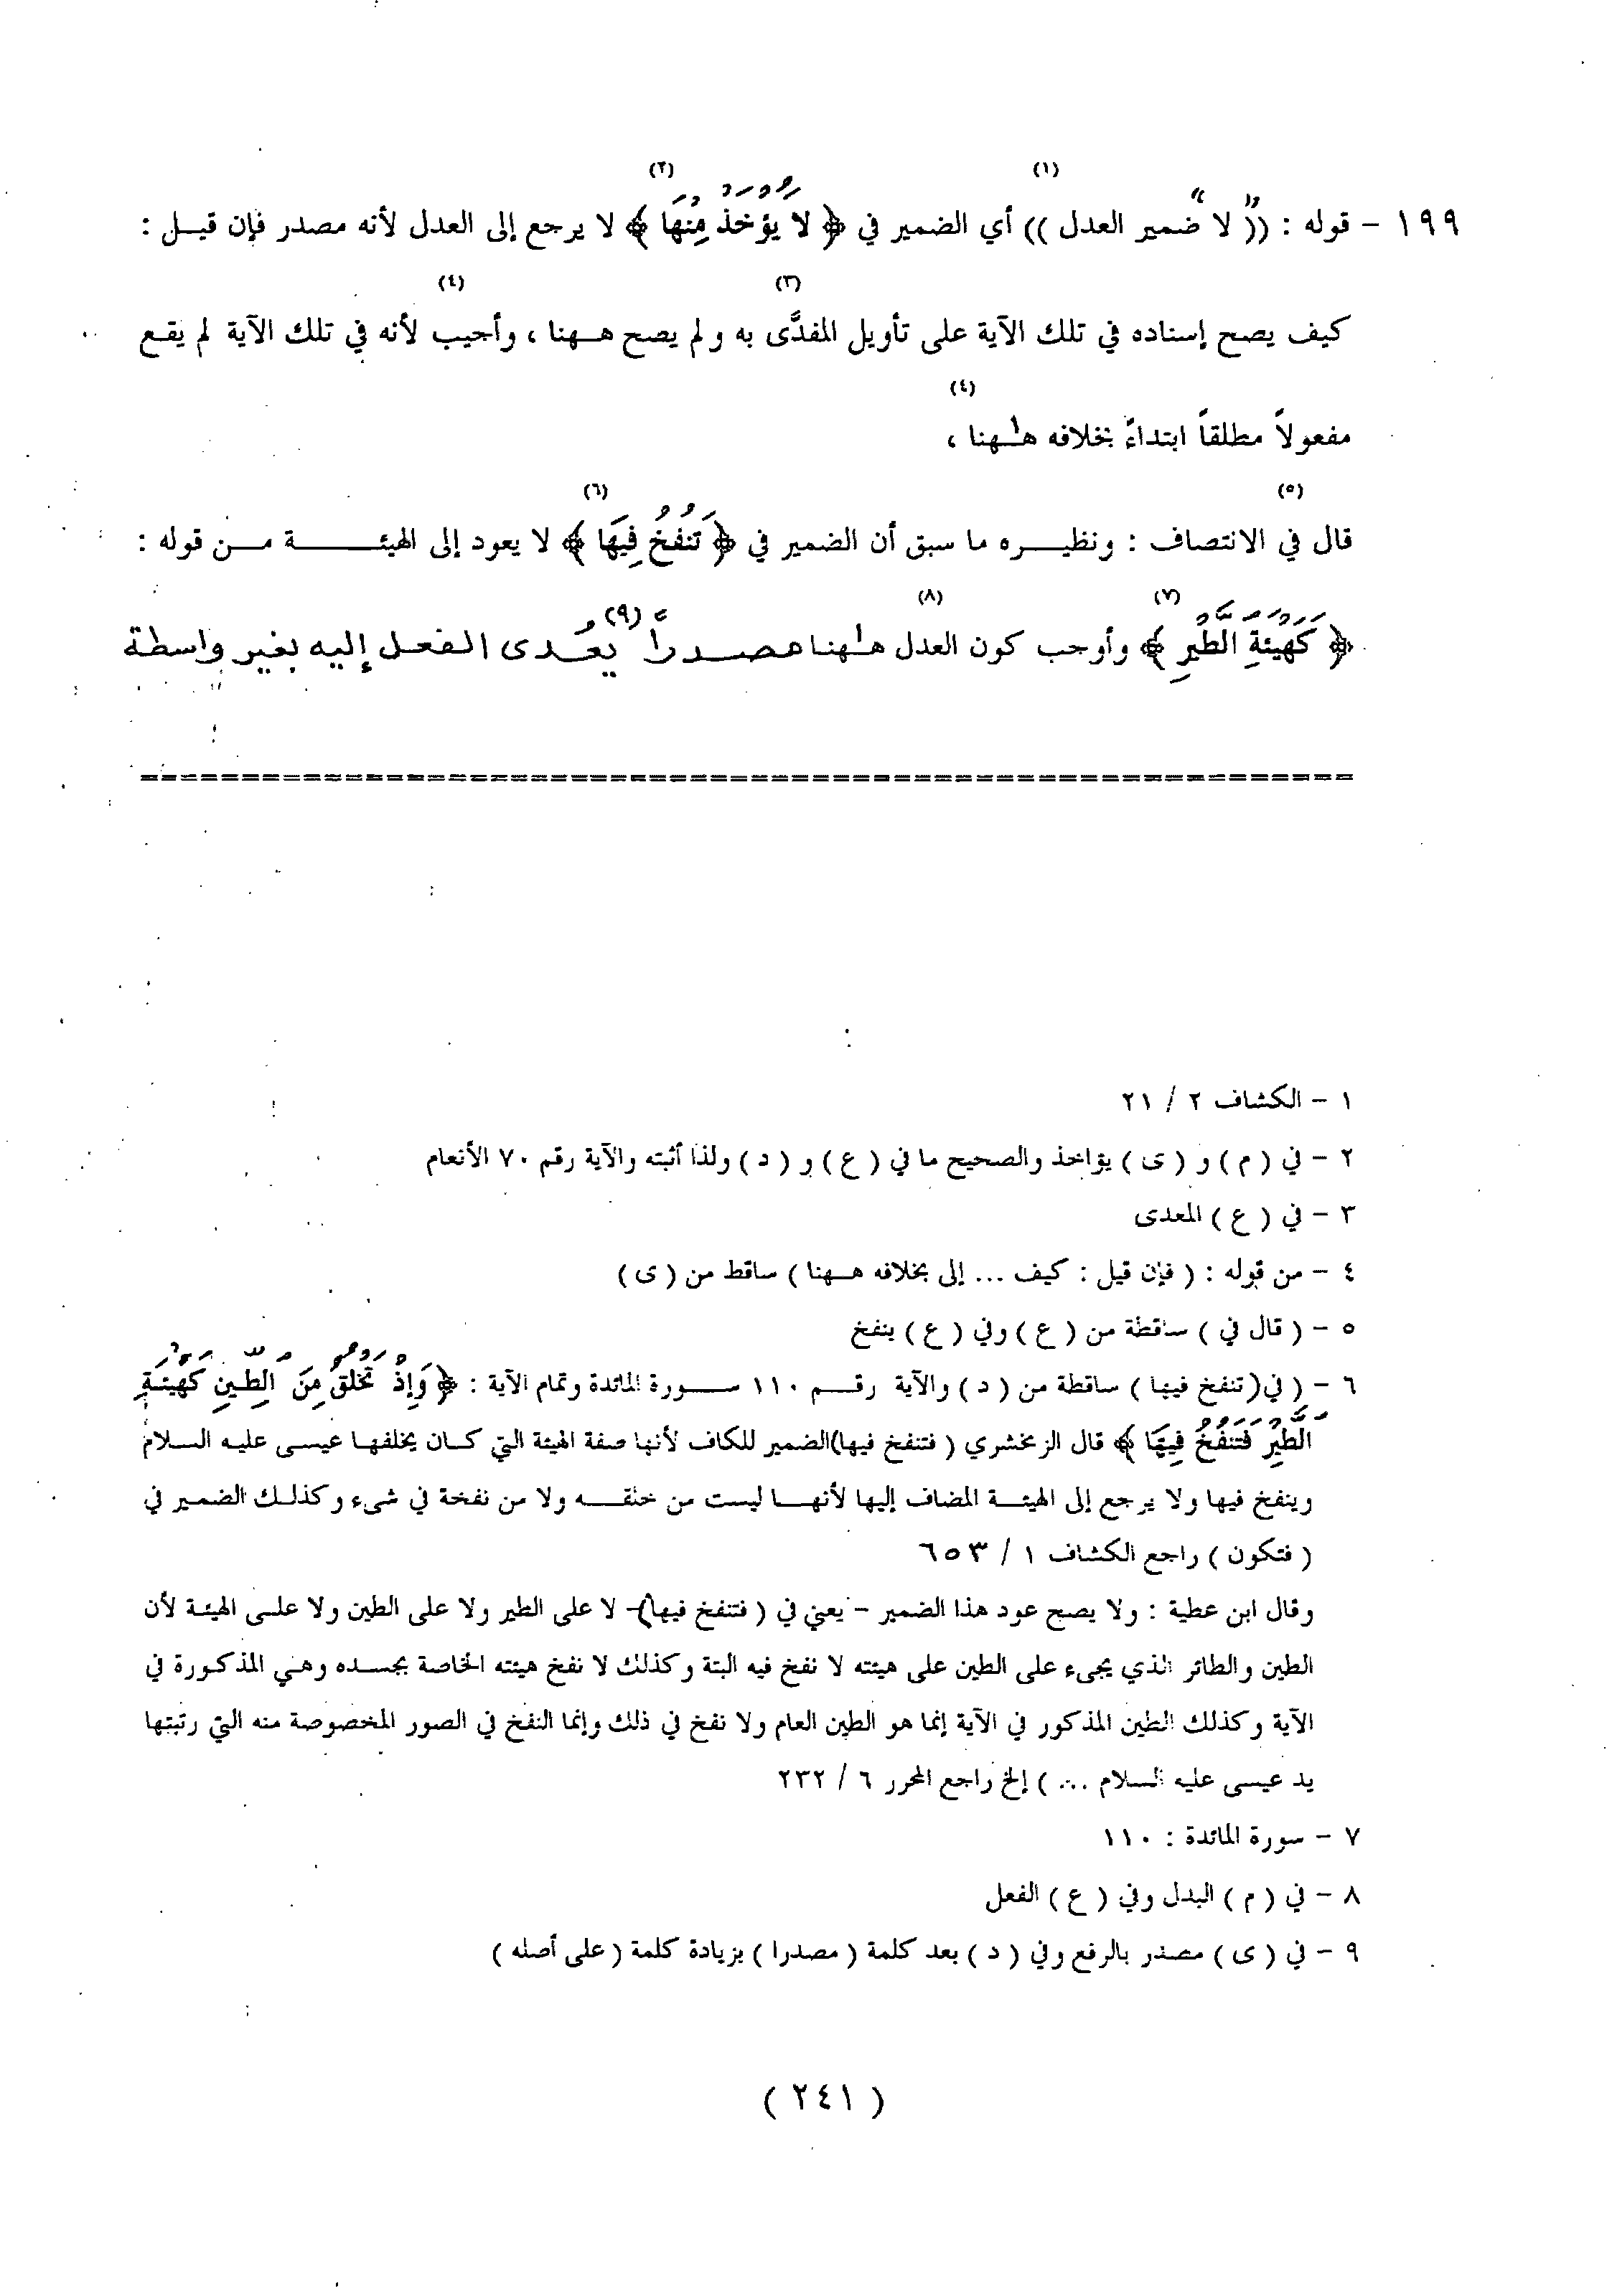 (١) (٢)
١٩٩ - قوله : (( لا ضمير العدل )) أي الضمير في ﴿ لَا يُؤْخَذْ مِنْهَا ﴾ لا يرجع إلى العدل لأنه مصدر فإن قيــل :
(٣) (٤)
كيف يصح إسناده في تلك الآية على تأويل المفدَّى به ولم يصح هــهنا ، وأجيب لأنه في تلك الآية لم يقـع
(٤)
مفعولاً مطلقاً ابتداءً بخلافه هـٰهنا ،
(٥) (٦)
قال في الانتصاف : ونظيـــره ما سبق أن الضمير في ﴿ تَنفُخُ فِيهَا ﴾ لا يعود إلى الهيئــــــة مــن قوله :
(٧) (٨)
﴿ كَهَيْئَةِ الطَّيْرِ ﴾ وأوجب كون العدل هـٰهنا مصــدراً (٩) يُعَــدى الفعــل إليه بغير واسطة
١ - الكشاف ٢ / ٢١
٢ - في ( م ) و ( ى ) يؤاخذ والصحيح ما في ( ع ) و ( د ) ولذا أثبته والآية رقم ٧٠ الأنعام
٣ - في ( ع ) المعدى
٤ - من قوله : ( فإن قيل : كيف ... إلى بخلافه هــهنا ) ساقط من ( ى )
٥ - ( قال في ) ساقطة من ( ع ) وفي ( ع ) ينفخ
٦ - ( في( تنفخ فيها ) ساقطة من ( د ) والآية رقــم ١١٠ ســـورة المائدة وتمام الآية : ﴿ وَإِذْ تَخْلُقُ مِنَ الطِّينِ كَهَيْئَةِ
الطَّيْرِ فَتَنفُخُ فِيهَا ﴾ قال الزمخشري ( فتنفخ فيها)الضمير للكاف لأنها صفة الهيئة التي كــان يخلقهــا عيسى عليـه السـلام
وينفخ فيها ولا يرجع إلى الهيئــة المضاف إليها لأنهــا ليست من خلقــه ولا من نفخة في شىء وكذلـك الضمير في
( فتكون ) راجع الكشاف ١ / ٦٥٣
وقال ابن عطية : ولا يصح عود هذا الضمير - يعني في ( فتنفخ فيها)- لا على الطير ولا على الطين ولا علـى الهيئـة لأن
الطين والطائر الذي يجىء على الطين على هيئته لا نفخ فيه البتة وكذلك لا نفخ هيئته الخاصة بجسـده وهـي المذكـورة في
الآية وكذلك الطين المذكور في الآية إنما هو الطين العام ولا نفخ في ذلك وإنما النفخ في الصور المخصوصة منه التي رتبتها
يد عيسى عليه السلام ... ) إلخ راجع المحرر ٦ / ٢٣٢
٧ - سورة المائدة : ١١٠
٨ - في ( م ) البدل وفي ( ع ) الفعل
٩ - في ( ى ) مصدر بالرفع وفي ( د ) بعد كلمة ( مصدرا ) بزيادة كلمة ( على أصله )
( ٢٤١ )